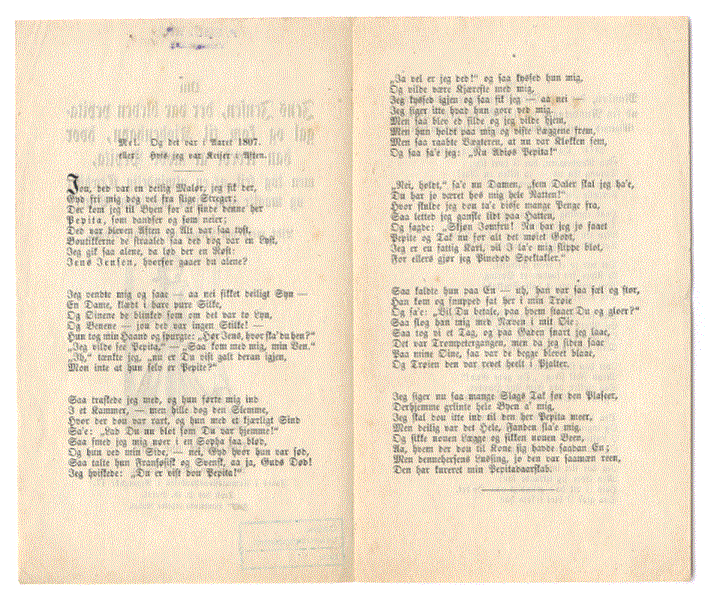 Mel. Og det var i Aaret 1807.
eller: Hvis jeg var Keiser i Østen.
Jou, ded var en deilig Maler, jeg fik der,
Gud fri mig dog vel fra slige Streger;
Der kom jeg til Byen for at finde denne her
Pepita, som dandser og som neier;
Ded var bleven Aften og Alt var saa tyst,
Boutikkerne de straaled saa ded dog var en Lyst,
Jeg gik saa alene, da lød der en Røst:
Jens Jensen, hvorfor gaaer du alene?
Jeg vendte mig og saae — aa nei sikket deiligt Syn —
En Dame, klædt i bare pure Silke,
Og Øinene de blinked som om det var to Lyn,
Og Benene — jou ded var ingen Stilke! —
Hun tog min Haand og spurgte: „Hør Jens, hvor ska' du hen?"
„Jeg vilde see Pepita," — „Saa kom med mig, min Ven."
„Ih," tænkte jeg, „nu er Du vist galt deran igjen,
Mon inte at hun selv er Pepite?"
Saa traskede jeg med, og hun førte mig ind
I et Kammer, — men hille dog den Slemme,
Hvor der dov var rart, og hun med et kjærligt Sind
Sa'e: „Lad Du nu blot som Du var hjemme!"
Saa smed jeg mig neer i en Sopha saa blød,
Og hun ved min Side, — nei, Gud hvor hun var sød,
Saa talte hun Fransøsisk og Svensk, aa ja, Guds Død!
Jeg hviskede: „Du er vist dov Pepita!"
„Ja vel er jeg ded!" og saa kyssed hun mig,
Og vilde være Kjæreste med mig,
Jeg kyssed igjen og saa fik jeg — aa nei —
Jeg siger itte hvad hun gorr ved mig.
Men saa blev ed silde og jeg vilde hjem,
Men hun holdt paa mig og viste Læggene frem,
Men saa raabte Vægteren, at nu var Klokken fem,
Og saa sa'e jeg: „Nu Adios Pepita!"
„Nei, holdt," sa'e nu Damen, „fem Daler skal jeg ha'e,
Du har jo været hos mig hele Natten!"
Hvor skulde jeg dou ta'e disse mange Penge fra,
Saa letted jeg ganske lidt paa Hatten,
Og sagde: „Skjøn Jomfru! Nu har jeg jo faaet
Pepite og Tak nu for alt det moiet Godt,
Jeg er en fattig Karl, vil I la'e mig slippe blot,
For ellers gjør jeg Pinedød Spektakler."
Saa kaldte hun paa En — uh, han var saa fæl og stor,
Han kom og snupped fat her i min Trøie
Og sa'e: „Vil Du betale, paa hvem skaaer Du og gloer?"
Saa slog han mig med Næven i mit Øie;
Saa tog vi et Tag, og paa Gaden snart jeg laae,
Det var Trompetergangen, men da jeg siden saae
Paa mine Øine, saa var de begge blevet blaae,
Og Trøien den var revet heelt i Pjalter.
Jeg siger nu saa mange Slags Tak for den Plaster,
Derhjemme grinte hele Byen a' mig,
Jeg skal dou itte ind til den her Pepita meer,
Men deilig var det Hele, Fanden sla'e mig.
Og sikke nouen Lægge og sikken nouen Been,
Aa, hvem der dou til Kone sig havde saadan En;
Men denneherfens Lussing, jo den var saamæn reen,
Den har kureret min Pepitadaarskab.